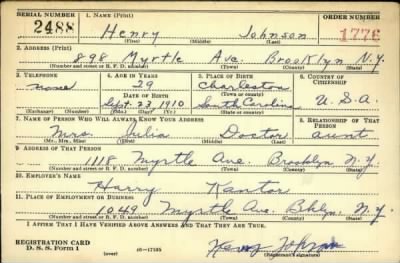 SERIAL NUMBER 1. NAME (Print) ORDER NUMBER
2488 Henry Johnson 1776
(First) (Middle) (Last)
2. ADDRESS (Print)
898 Myrtle Ave. Brooklyn N.Y.
(Number and street or R. F. D. number) (Town) (County) (State)
3. TELEPHONE 4. AGE IN YEARS 5. PLACE OF BIRTH 6. COUNTRY OF CITIZENSHIP
none 29 Charleston
DATE OF BIRTH (Town or county)
Sept. 23, 1910 South Carolina U.S.A.
(Exchange) (Number) (Mo.) (Day) (Yr.) (State or country)
7. NAME OF PERSON WHO WILL ALWAYS KNOW YOUR ADDRESS 8. RELATIONSHIP OF THAT PERSON
Mrs. Julia Doctor aunt
(Mr., Mrs., Miss) (First) (Middle) (Last)
9. ADDRESS OF THAT PERSON
1118 Myrtle Ave. Brooklyn N.Y.
(Number and street or R. F. D. number) (Town) (County) (State)
10. EMPLOYER'S NAME
Harry Kantor
11. PLACE OF EMPLOYMENT OR BUSINESS
1049 Myrtle Ave. Bklyn. N.Y.
(Number and street or R. F. D. number) (Town) (County) (State)
I AFFIRM THAT I HAVE VERIFIED ABOVE ANSWERS AND THAT THEY ARE TRUE.
REGISTRATION CARD
D. S. S. Form 1 (over) 16—17105 Henry Johnson
(Registrant's signature)